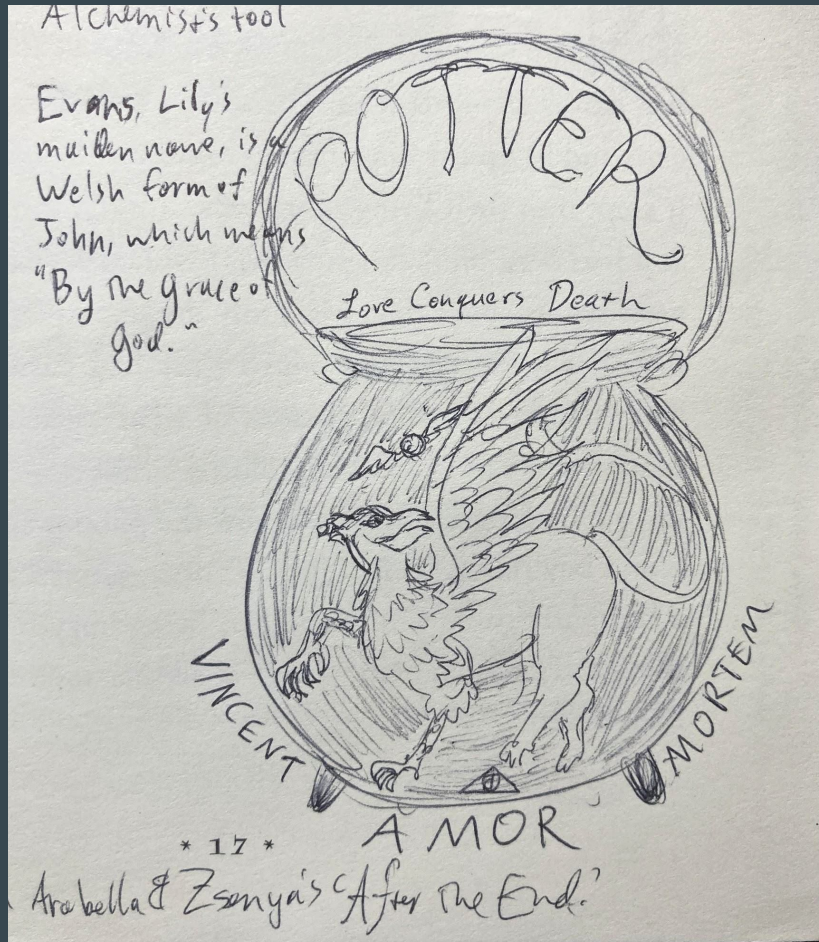 Alchemist's tool
Evans, Lily's
maiden name, is a
Welsh form of
John, which means
"By the grace of
god."
POTTER
Love Conquers Death
VINCENT
AMOR
MORTEM
* 17 *
Arabella & Zsenya's 'After the End.'